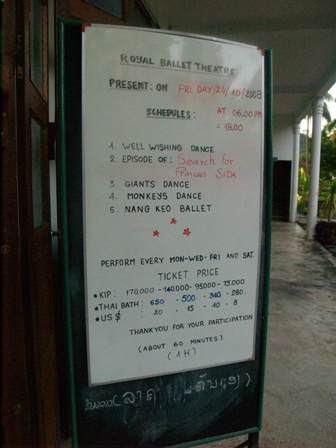 ROYAL BALLET THEATRE
PRESENT: ON FRIDAY/20/10/2008
SCHEDULES: AT 06.00 PM
= 18.00
1. WELL WISHING DANCE
2. EPISODE OF: Search for
Princess SIDA
3. GIANTS DANCE
4. MONKEYS DANCE
5. NANG KEO BALLET
PERFORM EVERY MON-WED-FRI AND SAT.
TICKET PRICE
• KIP: 170,000 - 140,000 - 95,000 - 75,000
• THAI BATH: 650 - 500 - 340 - 280
• US $: 20 - 15 - 10 - 8
THANKYOU FOR YOUR PARTICIPATION
(ABOUT 60 MINUTES)
(1H)